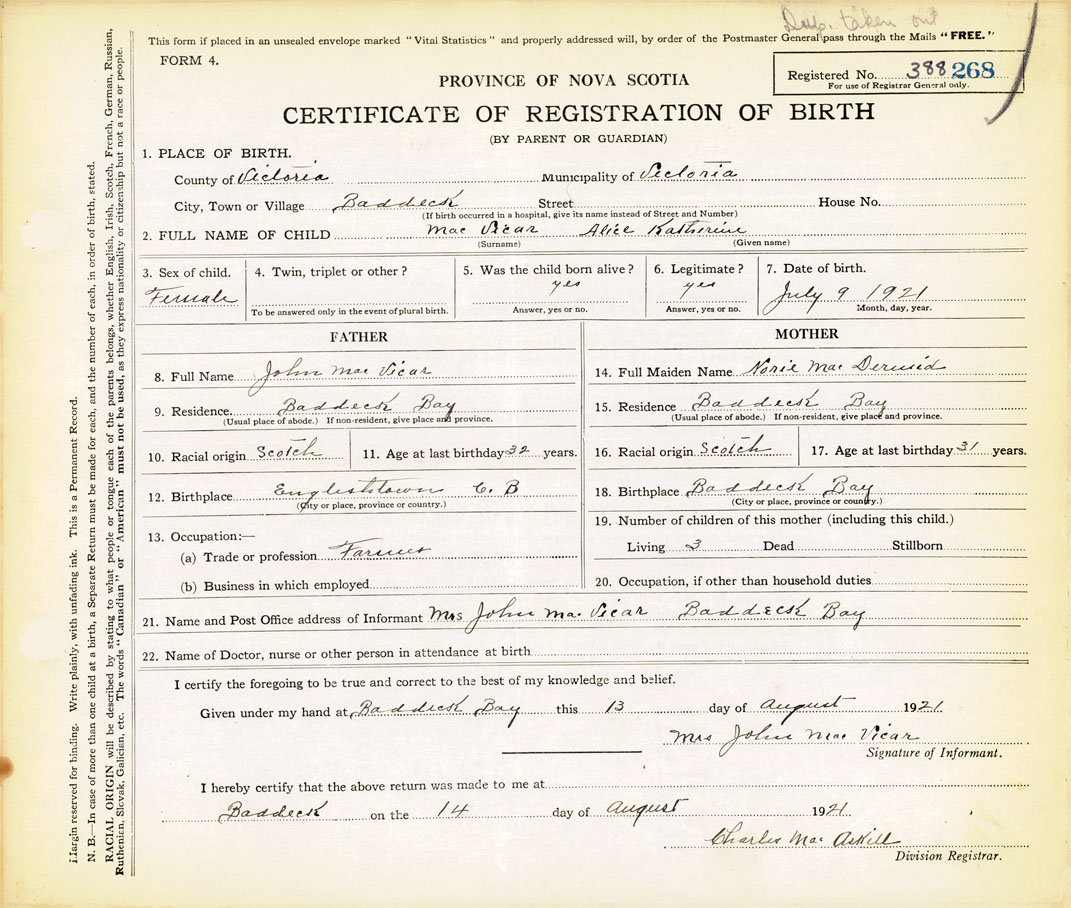 Dup. taken out
This form if placed in an unsealed envelope marked "Vital Statistics" and properly addressed will, by order of the Postmaster General pass through the Mails "FREE."
FORM 4.
PROVINCE OF NOVA SCOTIA
Registered No. 388 268
For use of Registrar General only.
CERTIFICATE OF REGISTRATION OF BIRTH
(BY PARENT OR GUARDIAN)
1. PLACE OF BIRTH.
County of Victoria Municipality of Victoria
City, Town or Village Baddeck Street House No.
(If birth occurred in a hospital, give its name instead of Street and Number)
2. FULL NAME OF CHILD Mac Vicar Alice Katherine
(Surname) (Given name)
3. Sex of child. 4. Twin, triplet or other? 5. Was the child born alive? 6. Legitimate? 7. Date of birth.
Female yes yes July 9 1921
To be answered only in the event of plural birth. Answer, yes or no. Answer, yes or no. Month, day, year.
FATHER
8. Full Name John Mac Vicar
9. Residence. Baddeck Bay
(Usual place of abode.) If non-resident, give place and province.
10. Racial origin Scotch 11. Age at last birthday 32 years.
12. Birthplace Englishtown C. B
(City or place, province or country.)
13. Occupation:—
(a) Trade or profession Farmer
(b) Business in which employed
MOTHER
14. Full Maiden Name Norie Mac Dermid
15. Residence Baddeck Bay
(Usual place of abode.) If non-resident, give place and province.
16. Racial origin Scotch 17. Age at last birthday 31 years.
18. Birthplace Baddeck Bay
(City or place, province or country.)
19. Number of children of this mother (including this child.)
Living 3 Dead Stillborn
20. Occupation, if other than household duties
21. Name and Post Office address of Informant Mrs John Mac Vicar Baddeck Bay
22. Name of Doctor, nurse or other person in attendance at birth
I certify the foregoing to be true and correct to the best of my knowledge and belief.
Given under my hand at Baddeck Bay this 13 day of August 1921
Mrs John Mac Vicar
Signature of Informant.
I hereby certify that the above return was made to me at
Baddeck on the 14 day of August 1921
Charles Mac Askill
Division Registrar.
Margin reserved for binding. Write plainly, with unfading ink. This is a Permanent Record.
N. B.—In case of more than one child at a birth, a Separate Return must be made for each, and the number of each, in order of birth, stated.
RACIAL ORIGIN will be described by stating to what people or tongue each of the parents belongs, whether English, Irish, Scotch, French, German, Russian,
Ruthenian, Slovak, Galician, etc. The words "Canadian" or "American" must not be used, as they express nationality or citizenship but not a race or people.